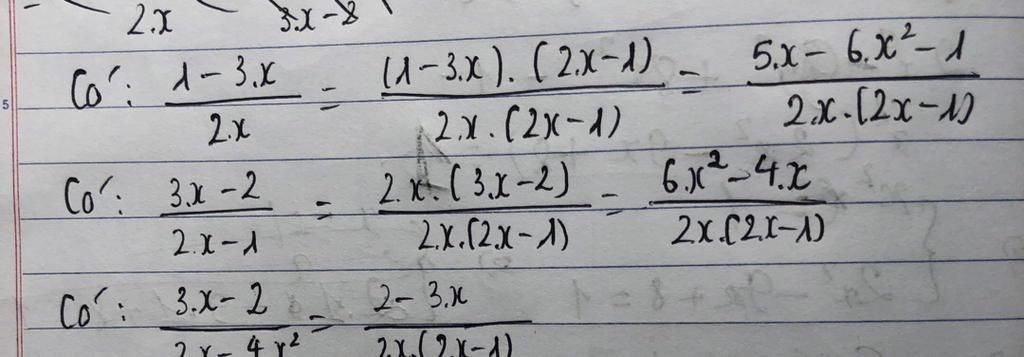 2.x 3.x-8
Có: \frac{1-3.x}{2.x} = \frac{(1-3.x).(2x-1)}{2.x.(2x-1)} = \frac{5.x-6.x^2-1}{2.x.(2x-1)}
Có: \frac{3.x-2}{2.x-1} = \frac{2.x.(3.x-2)}{2x.(2x-1)} = \frac{6.x^2-4.x}{2x.(2.x-1)}
Có: \frac{3.x-2}{2x-4x^2} = \frac{2-3.x}{2x.(2x-1)}